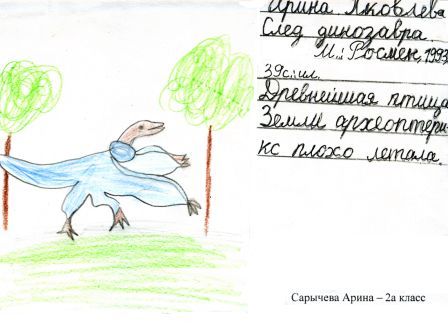 Ирина Яковлева
След динозавра.
М.: Росмен, 1993
39с.: ил.
Древнейшая птица
Земли археоптери-
кс плохо летала.
Сарычева Арина – 2а класс